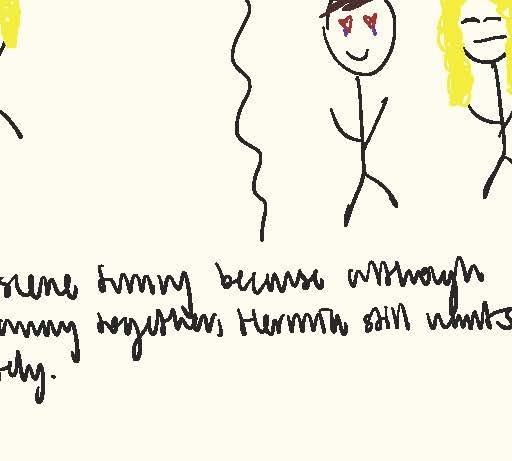 scene funny because although
together, Hermia still wants